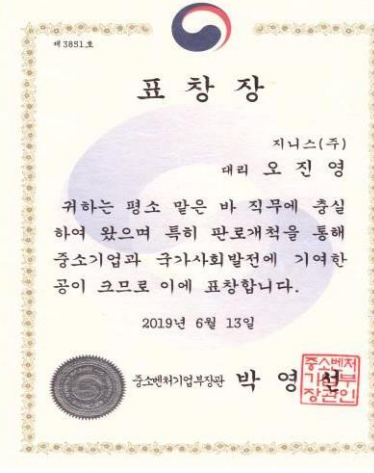 제 3851 호
표 창 장
지니스(주)
대리 오 진 영
귀하는 평소 맡은 바 직무에 충실
하여 왔으며 특히 판로개척을 통해
중소기업과 국가사회발전에 기여한
공이 크므로 이에 표창합니다.
2019년 6월 13일
중소벤처기업부장관 박 영 선
중소벤처
기업부
장관인